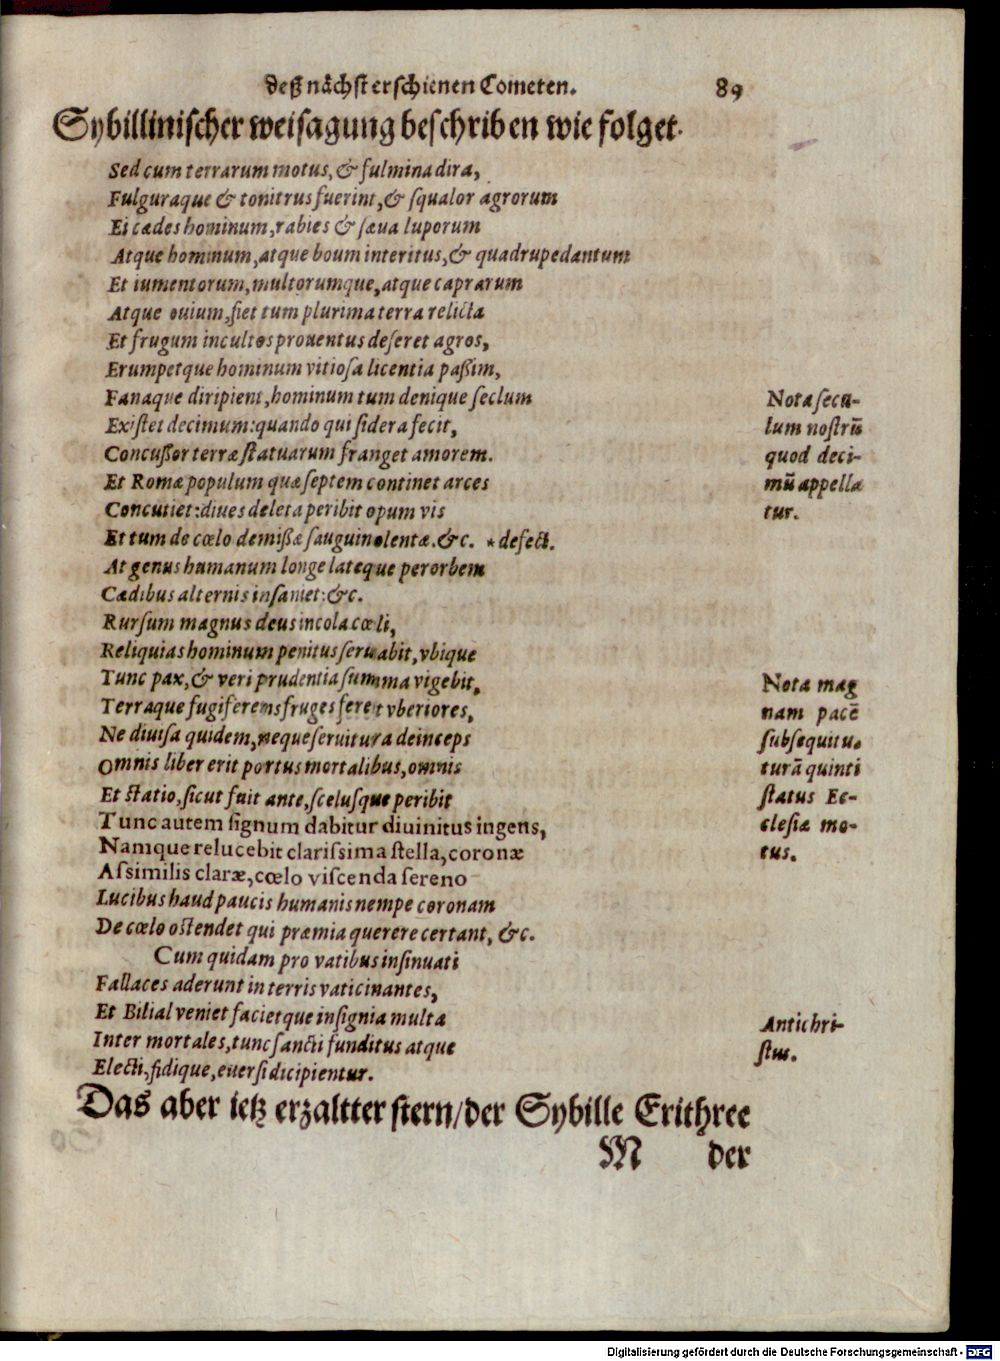 deß nächst erschienen Cometen. 89
Sybillinischer weisagung beschriben wie folget.
Sed cum terrarum motus, & fulmina dira,
Fulguraque & tonitrus fuerint, & squalor agrorum
Ei cædes hominum, rabies & sæua luporum
Atque hominum, atque boum interitus, & quadrupedantum
Et iumentorum, multorumque, atque caprarum
Atque ouium, fiet tum plurima terra relicta
Et frugum incultos prouentus deseret agros,
Erumpetque hominum vitiosa licentia paßim,
Fanaque diripient, hominum tum denique seclum
Existet decimum: quando qui sidera fecit,
Concußor terræ statuarum franget amorem.
Et Romæ populum quæ septem continet arces
Concutiet: diues deleta peribit opum vis
Et tum de cœlo demißæ sanguinolentæ. &c. * defect.
At genus humanum longe lateque per orbem
Cædibus alternis insaniet: &c.
Rursum magnus deus incola cœli,
Reliquias hominum penitus seruabit, vbique
Tunc pax, & veri prudentia summa vigebit,
Terraque fugiferens fruges feret vberiores,
Ne diuisa quidem, neque seruitura deinceps
Omnis liber erit portus mortalibus, omnis
Et statio, sicut fuit ante, scelusque peribit
Tunc autem signum dabitur diuinitus ingens,
Namque relucebit clarissima stella, coronæ
Assimilis claræ, cœlo viscenda sereno
Lucibus haud paucis humanis nempe coronam
De cœlo ostendet qui præmia querere certant, &c.
Cum quidam pro vatibus insinuati
Fallaces aderunt in terris vaticinantes,
Et Bilial veniet facietque insignia multa
Inter mortales, tunc sancti funditus atque
Electi, fidique, euersi dicipientur.
Nota secu-
lum nostrũ
quod deci-
mũ appella
tur.
Nota mag
nam pacẽ
subsequitu-
turã quinti
status Ec-
clesiæ mo-
tus.
Antichri-
stus.
Das aber ietz erzaltter stern/der Sybille Erithree
M der
Digitalisierung gefördert durch die Deutsche Forschungsgemeinschaft - DFG